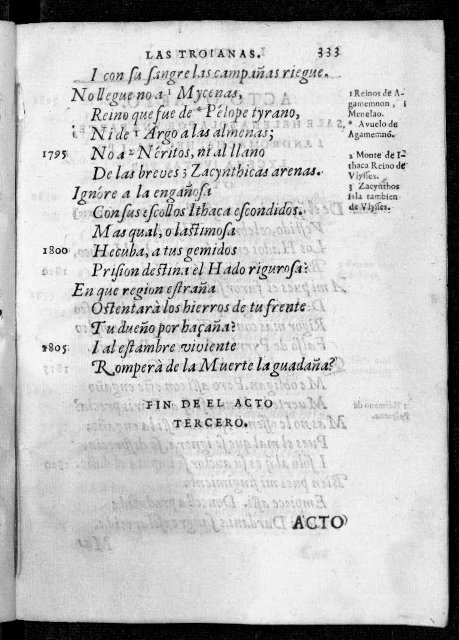 LAS TROIANAS. 333
I con sa sangre las campañas riegue.
No llegue no a ¹ Mycenas,
Reino que fue de * Pélope tyrano,
Ni de ¹ Argo a las almenas;
1795 No a ² Néritos, ni al llano
De las breves 3 Zacynthicas arenas.
Ignòre a la engañosa
Con sus escollos Ithaca escondidos.
Mas qual, o lastimosa
1800 Hecuba, a tus gemidos
Prision destina el Hado rigurosa?
En que region estraña
Ostentarà los hierros de tu frente
Tu dueño por haçaña?
1805 I al estambre viviente
Romperà de la Muerte la guadaña?
1 Reinos de A-
gamemnon, i
Menelao.
* Avuelo de
Agamemnō.
2 Monte de I-
thaca Reino de
Vlysses.
3 Zacynthos
isla tambien
de Vlysses.
FIN DE EL ACTO
TERCERO.
ACTO